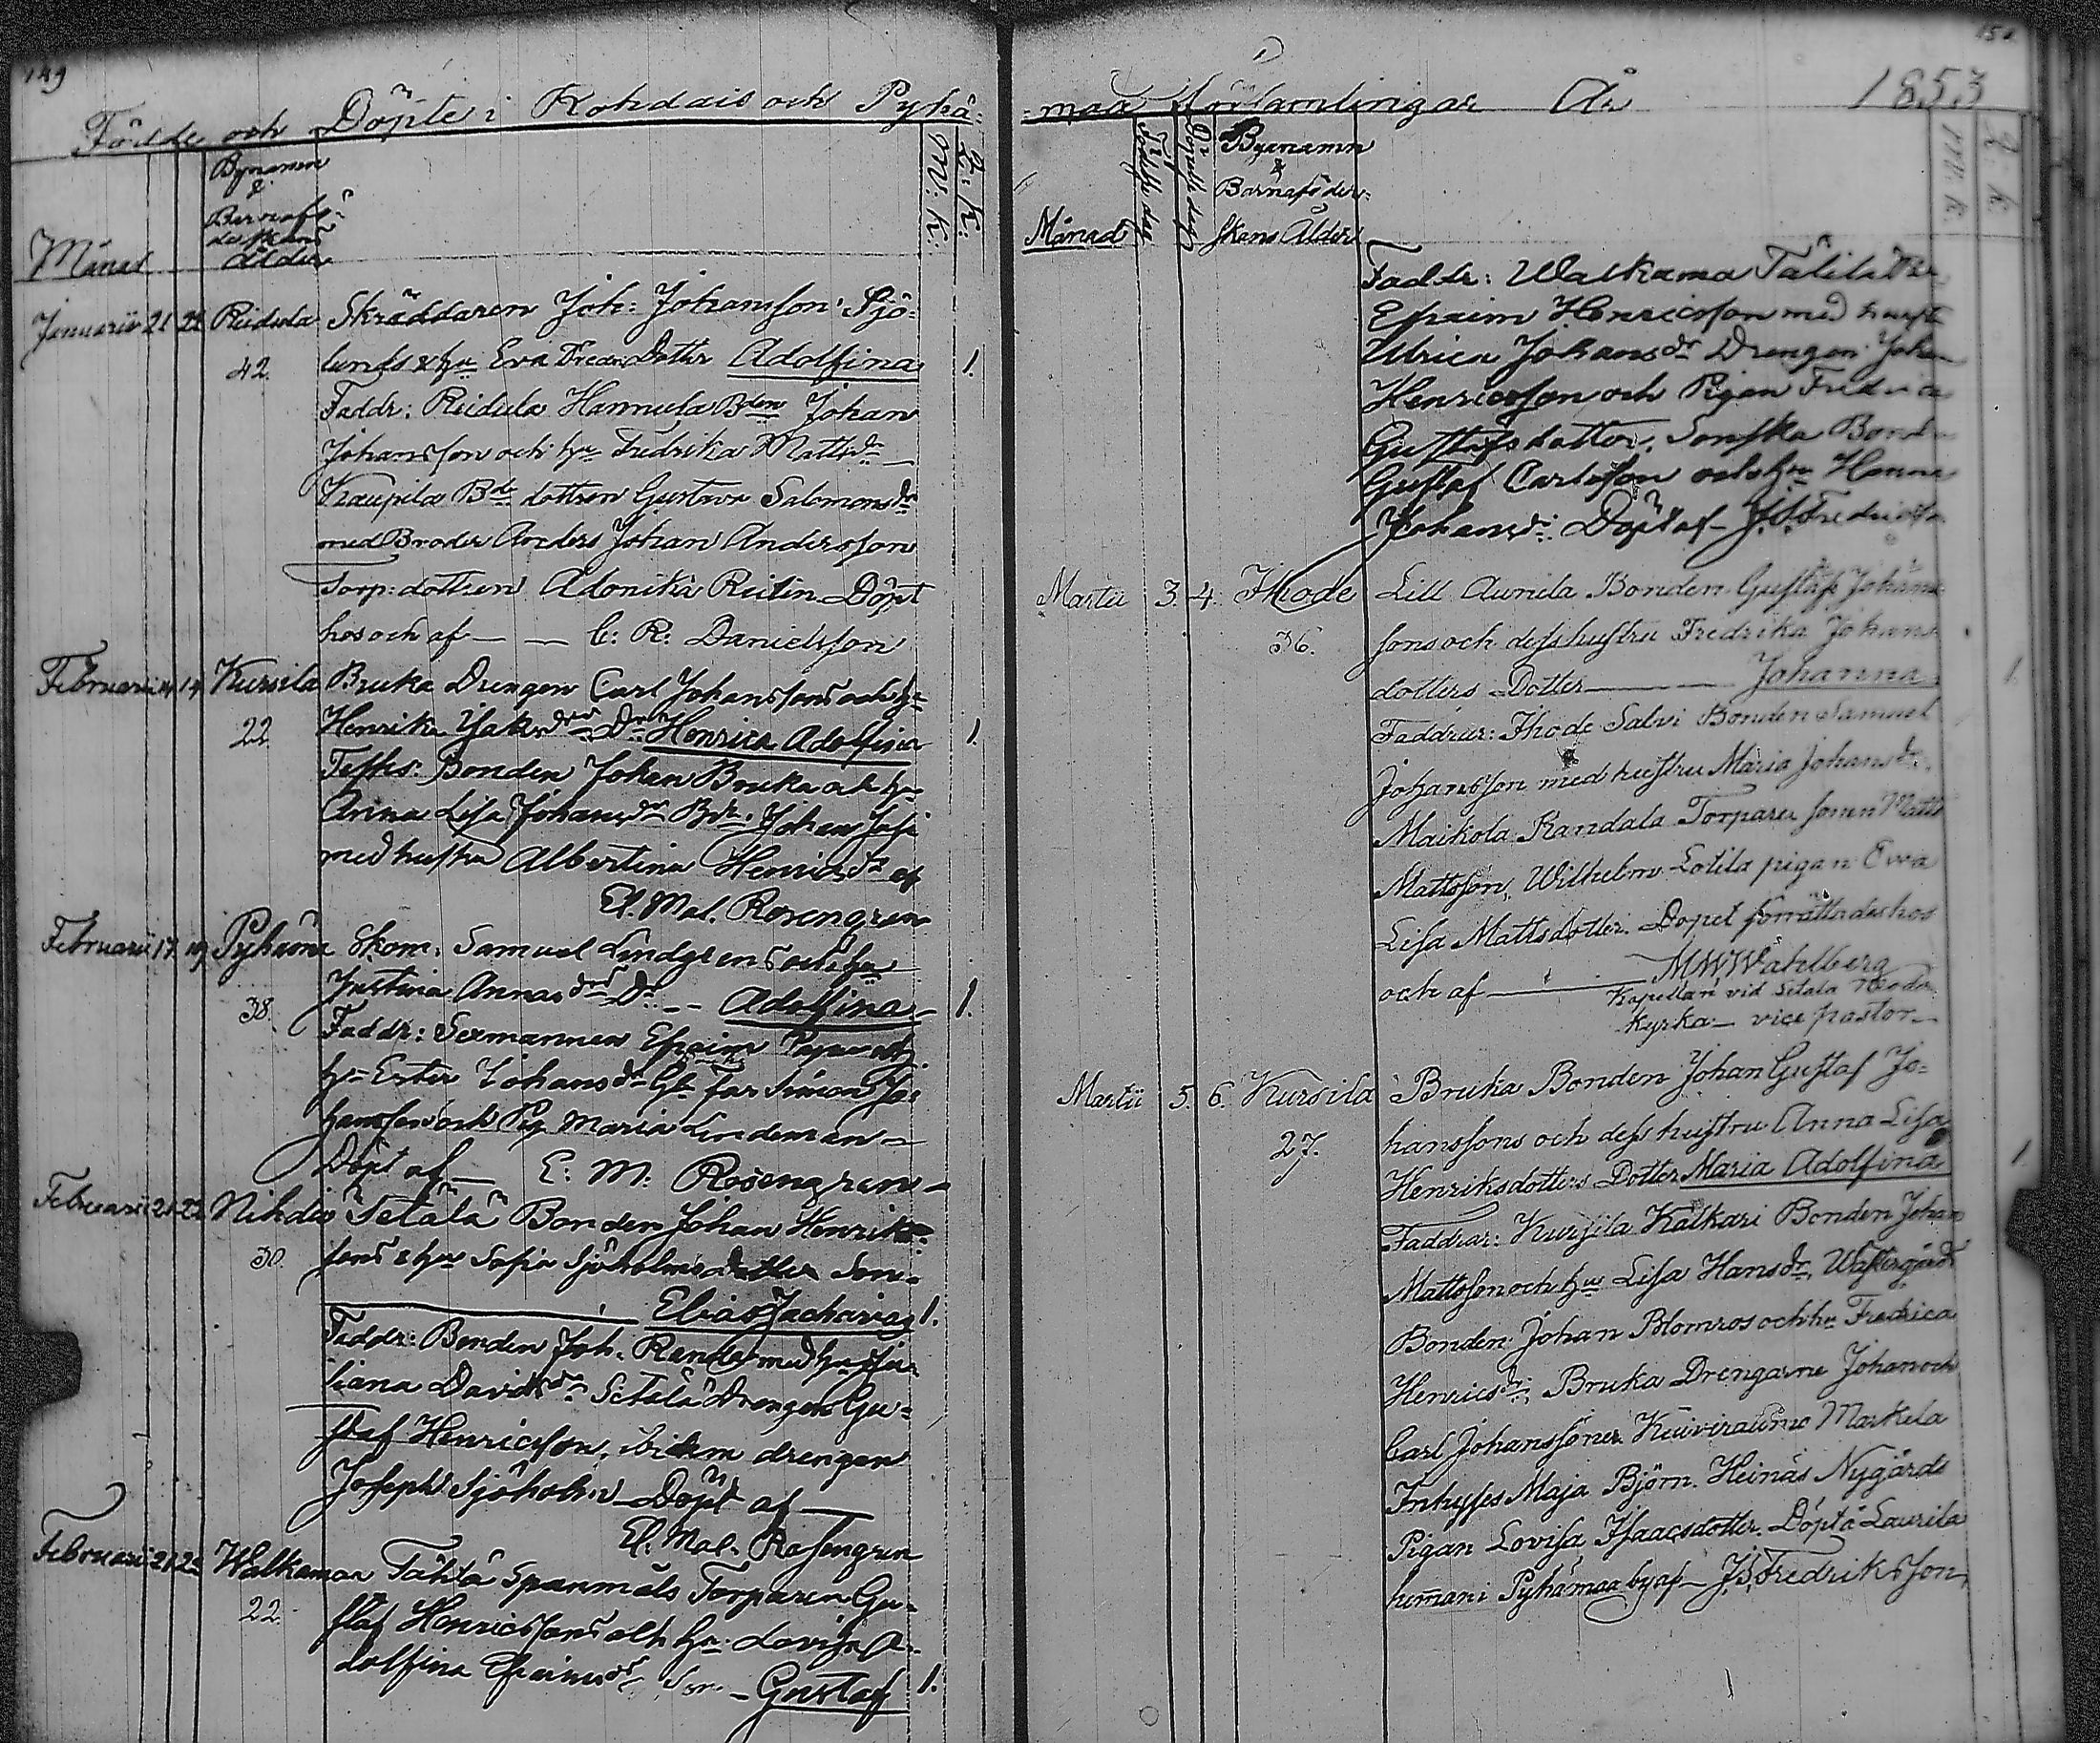 149
Födde och Döpte i Kohdais och Pyhä-
Bynamn
&
Barnafö-
derskans
ålder
M: k:
Q: k:
Månad
Januarii 21 Reidula Skräddaren Joh: Johansson Sjö-
42. lunds & hu Eva Dotter Adolfina 1.
Faddr: Reidula Hannula Bden Johan
Johansson och hu Fredrika Mattsdr
Kaupila Bde dottren Gustava Salomonsdr
med Broder Anders Johan Andersson
Torp: dottren Adonika Reilin Döpt
hos och af — — C: R: Danielsson
Februarii 14 Kursila Bruka Drengen Carl Johanssons och hu
22 Henrika Dr Henrica Adolfina 1.
Testes: Bonden Johan Bruka och hu
Anna Lisa Johansdr Bdn. Johan
med hustru Albertina Henricsdr af
El. Mal. Rosengren
Februarii 17 19 Skom. Samuel Lindgrens och hu
38. Justina Annasdrs Dr. -- Adolfina - 1.
Faddr: Sexmannen Efraim
hu Ester Johansdr Simon Jo-
hansson och Pig Maria Lindeman —
Döpt af — E: M: Rosengren —
Februarii 21 22 Nihdio Setälä Bonden Johan Henriks-
30. sons & hu Sofia Sjöholms Son-
Elias Zacharias 1.
Faddr: Bonden Joh. med hu Ju-
liana Davidsdr Setälä Drengen Gu-
staf Henricsson, ibidem drengen
Joseph Sjöholm Döpt af —
El. Mal. Rosengren
Februarii 21 22 Walkamaa Tähtä Spanmåls Torparen Gu-
22. staf Henricssons och hu Lovisa A-
dolfina Son - Gustaf 1.
-maa Församlingar År 1853
Månad
Födelse dag
Döpelse dag
Byenamn
&
Barnaföder-
skans Ålder
M. k.
Q. k.
Faddr: Walkama
Efraim Henricsson med hustr
Ulrica Johansdr Drengen Johan
Henricsson och Pigan Fredrica
Gustafsdotter, Sonska Bonden
Gustaf Carlsson och hu Hanna
Johansdr. Döpt af J.S. Fredricsson
Martii 3. 4. Ihode Lill Aunila Bonden Gustafs Johans-
36. sons och dess hustru Fredrika Johans-
dotters Dotter ——— Johanna 1
Faddrar: Ihode Salvi Bonden Samuel
Johansson med hustru Maria Johansdr.
Maikola Randala Torpare sonen Matts
Mattsson, Wilhelm Lotila pigan Eva
Lisa Mattsdotter. Dopet förrättades hos
och af ——— M W Wahlberg
Kapellan vid Letala Moder
Kyrka — vice pastor —
Martii 5. 6. Kursila Bruka Bonden Johan Gustaf Jo-
27. hanssons och dess hustru Anna Lisa
Henriksdotters Dotter Maria Adolfina 1
Faddrar: Kursila Kalkari Bonden Johan
Mattsson och hu Lisa Hansdr, Wästergårds
Bonden Johan Blomros och hu Fredrica
Henricsdr; Bruka Drengarne Johan och
Carl Johanssöner Kuivirauma Markula
Inhyses Maja Björn. Heinäs Nygårds
Pigan Lovisa Isaacsdotter. Döpt å Laurila
hemman i Pyhämaa by af — J.S. Fredriksson